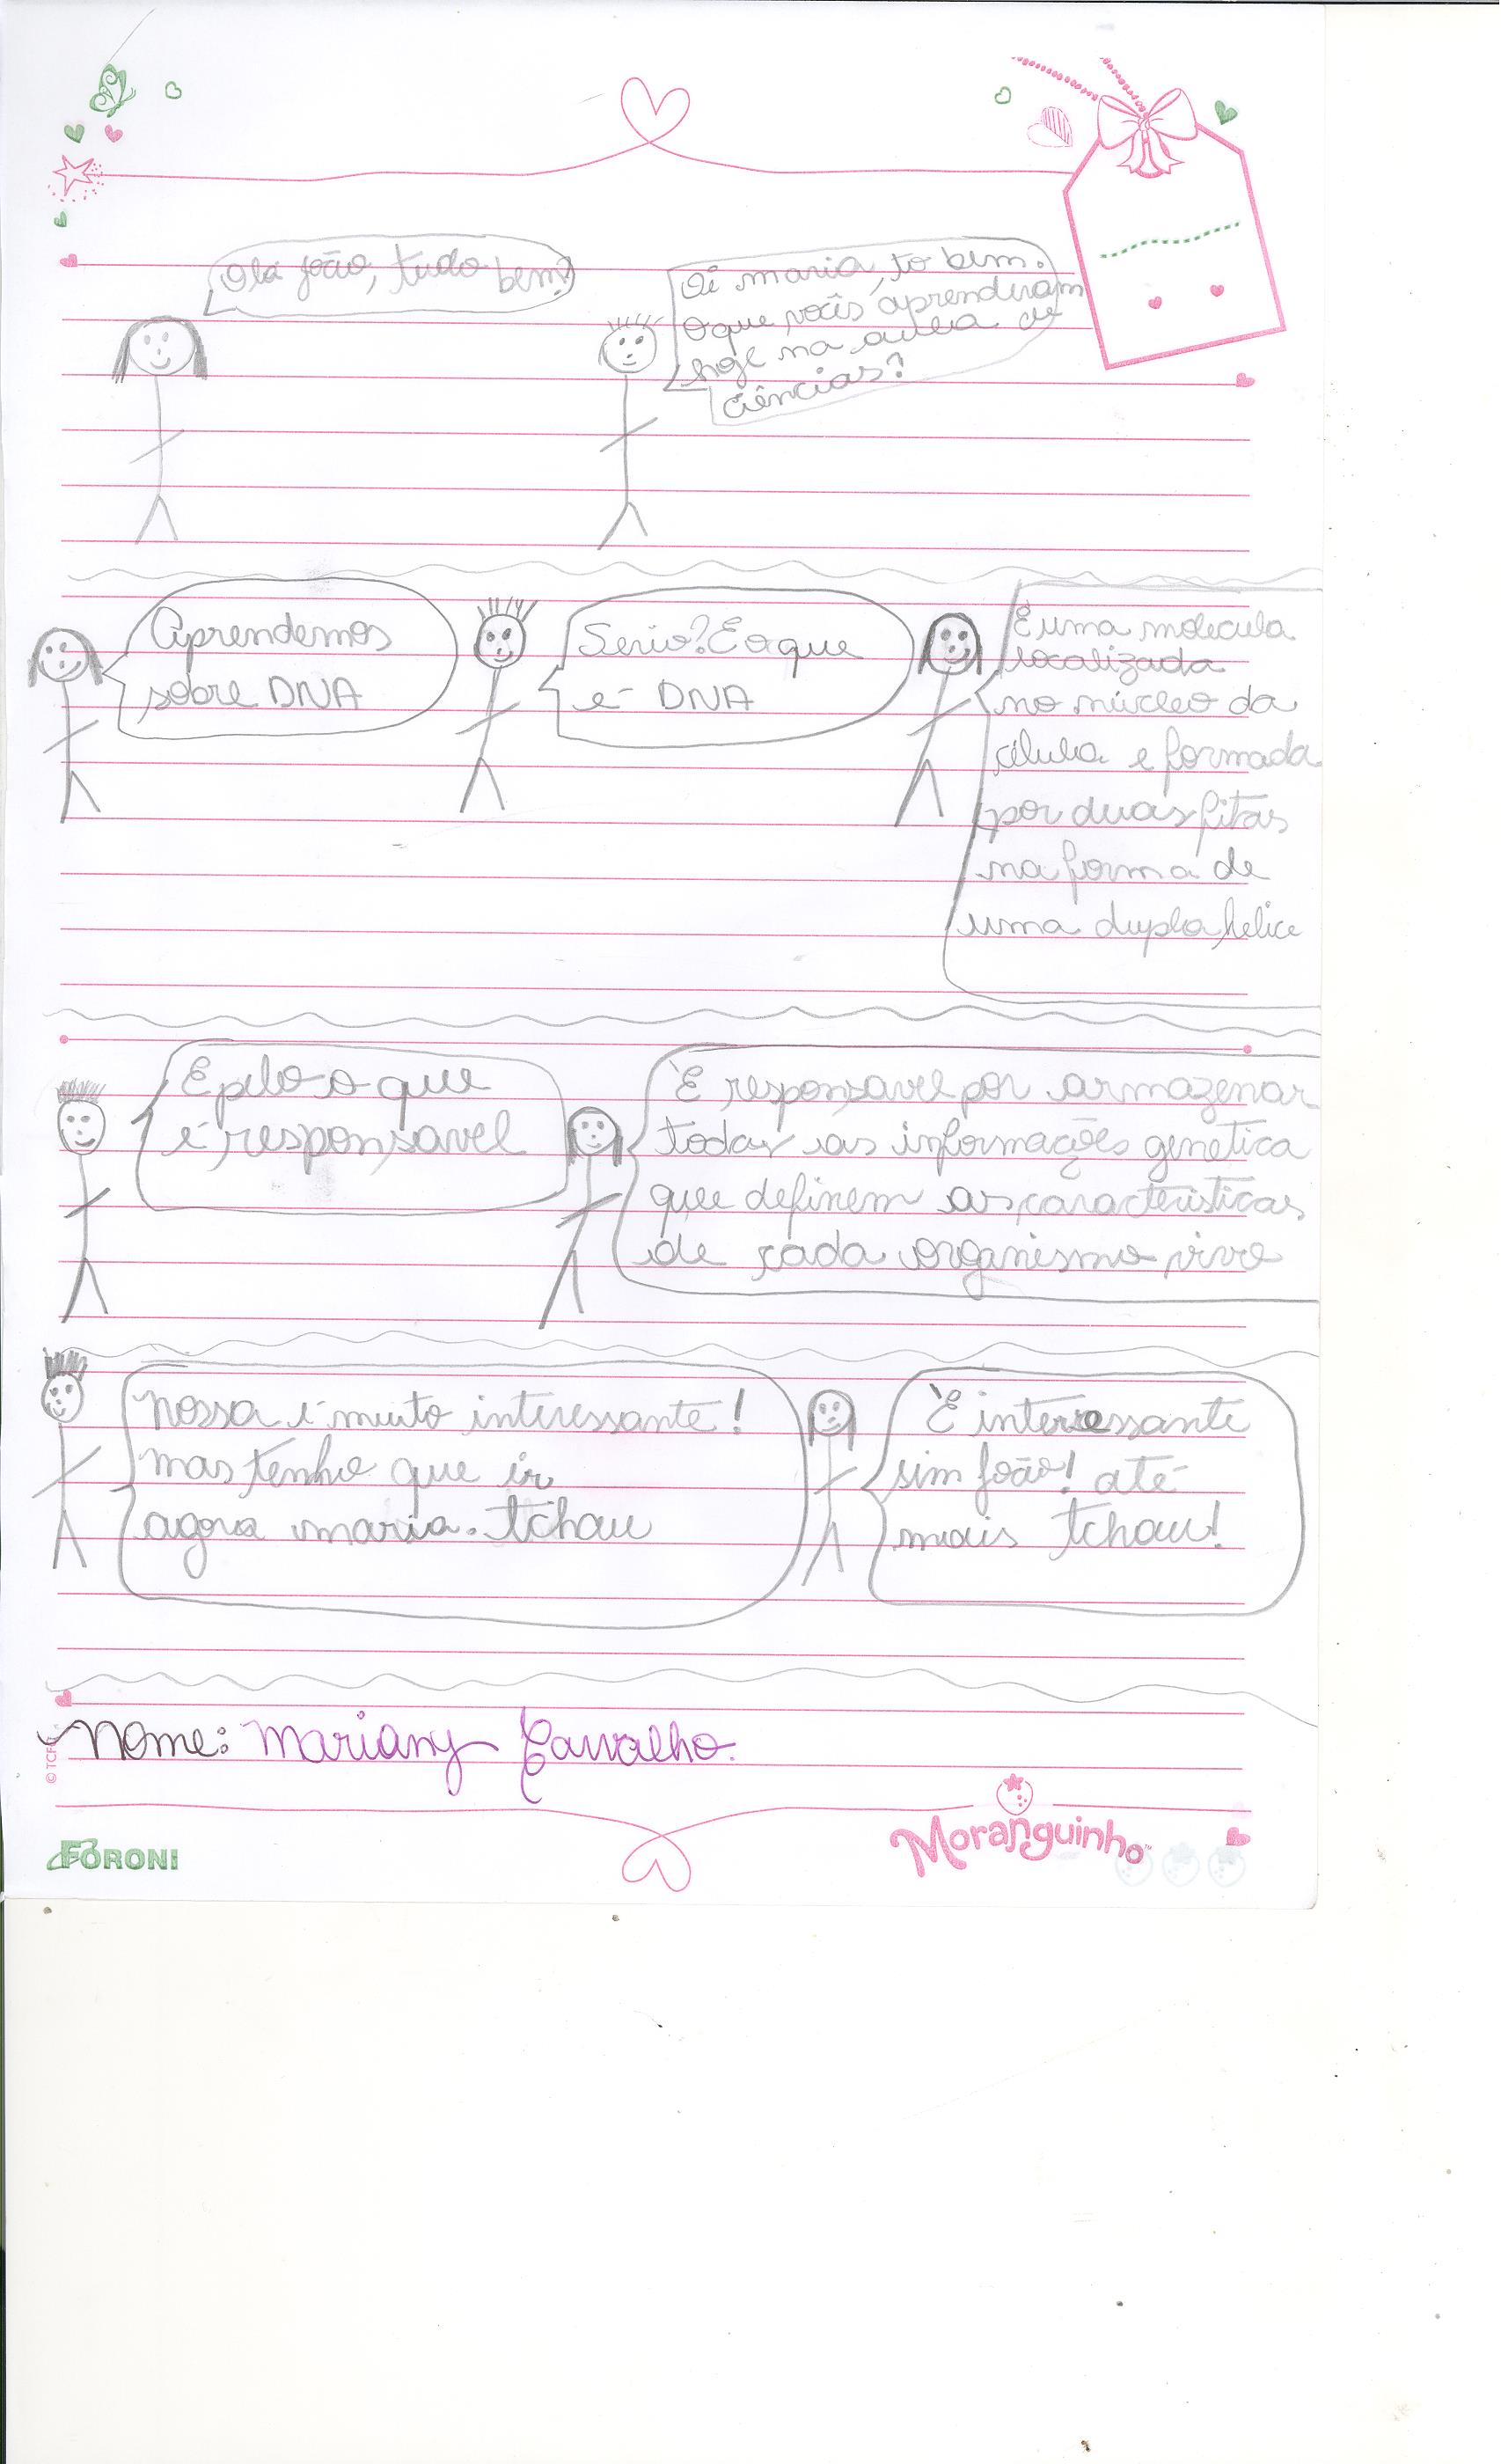 Olá joão, tudo bem?
Oi maria, to bem.
O que vocês aprenderam
hoje na aula de
ciências?
Aprendemos
sobre DNA
Serio? E o que
é DNA
É uma molecula
localizada
no núcleo da
célula e formada
por duas fitas
na forma de
uma dupla helice
E pelo o que
é responsavel
É responsavel por armazenar
todas as informações genetica
que definem as caracteristicas
de cada organismo vivo
Nossa é muito interessante!
mas tenho que ir
agora maria. tchau
É interessante
sim joão! até
mais tchau!
Nome: Mariany Carvalho.
FORONI
Moranguinho